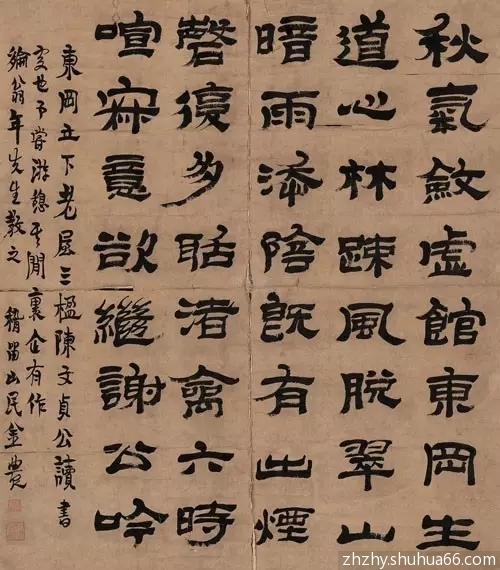 秋氣斂虛館東岡生
道心林疎風脫翠山
暗雨添陰既有出煙
磬復多聒渚禽六時
喧寂意欲繼謝公吟
東岡之下老屋三楹陳文貞公讀書
處也予嘗游憩其間褱企有作
綸翁年先生教之 稽留山民金農
zhzhy.shuhua66.com